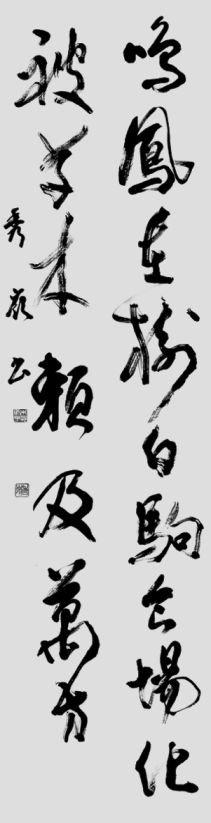 鳴鳳在樹白駒食場化
被草木賴及萬方
秀嵐書